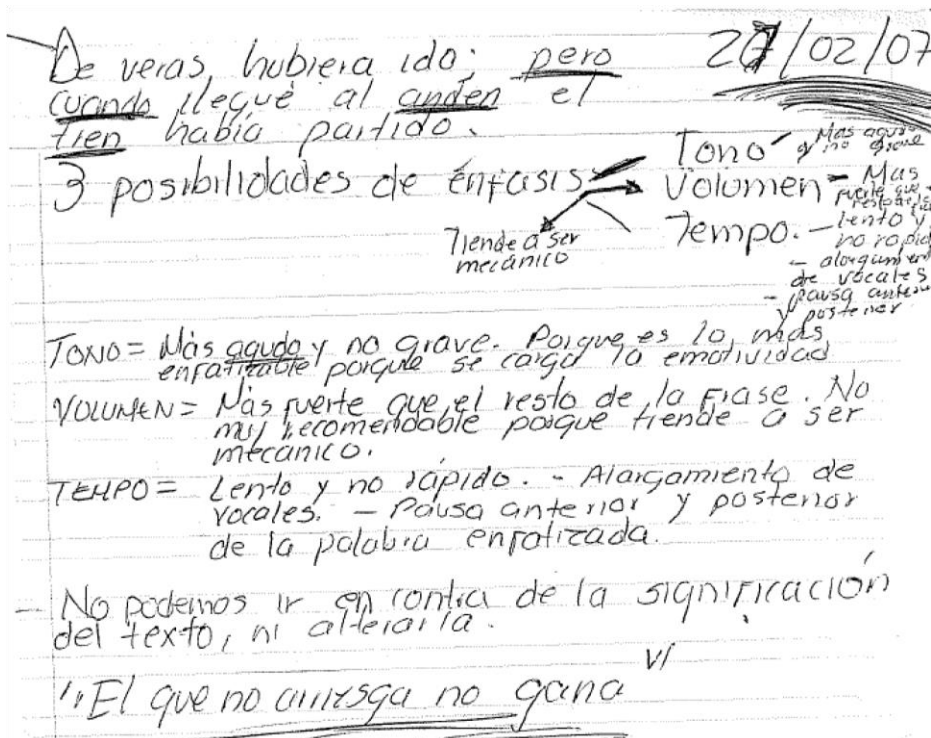 De veras, hubiera ido; pero 27/02/07
cuando llegué al andén el
tren había partido.
3 posibilidades de énfasis
Tono = Mas agudo y no grave
Volumen = Mas fuerte que
Tempo. - lento y no rapido
- alargamiento de vocales
- pausa anterior y posterior
Tiende a ser
mecánico
TONO = Más agudo y no grave. Porque es lo más
enfatizable porque se carga la emotividad
VOLUMEN = Más fuerte que el resto de la frase. No
muy recomendable porque tiende a ser
mecánico.
TEMPO = Lento y no rápido. - Alargamiento de
vocales. - Pausa anterior y posterior
de la palabra enfatizada.
- No podemos ir en contra de la significación
del texto, ni alterarla.
"El que no arriesga no gana"